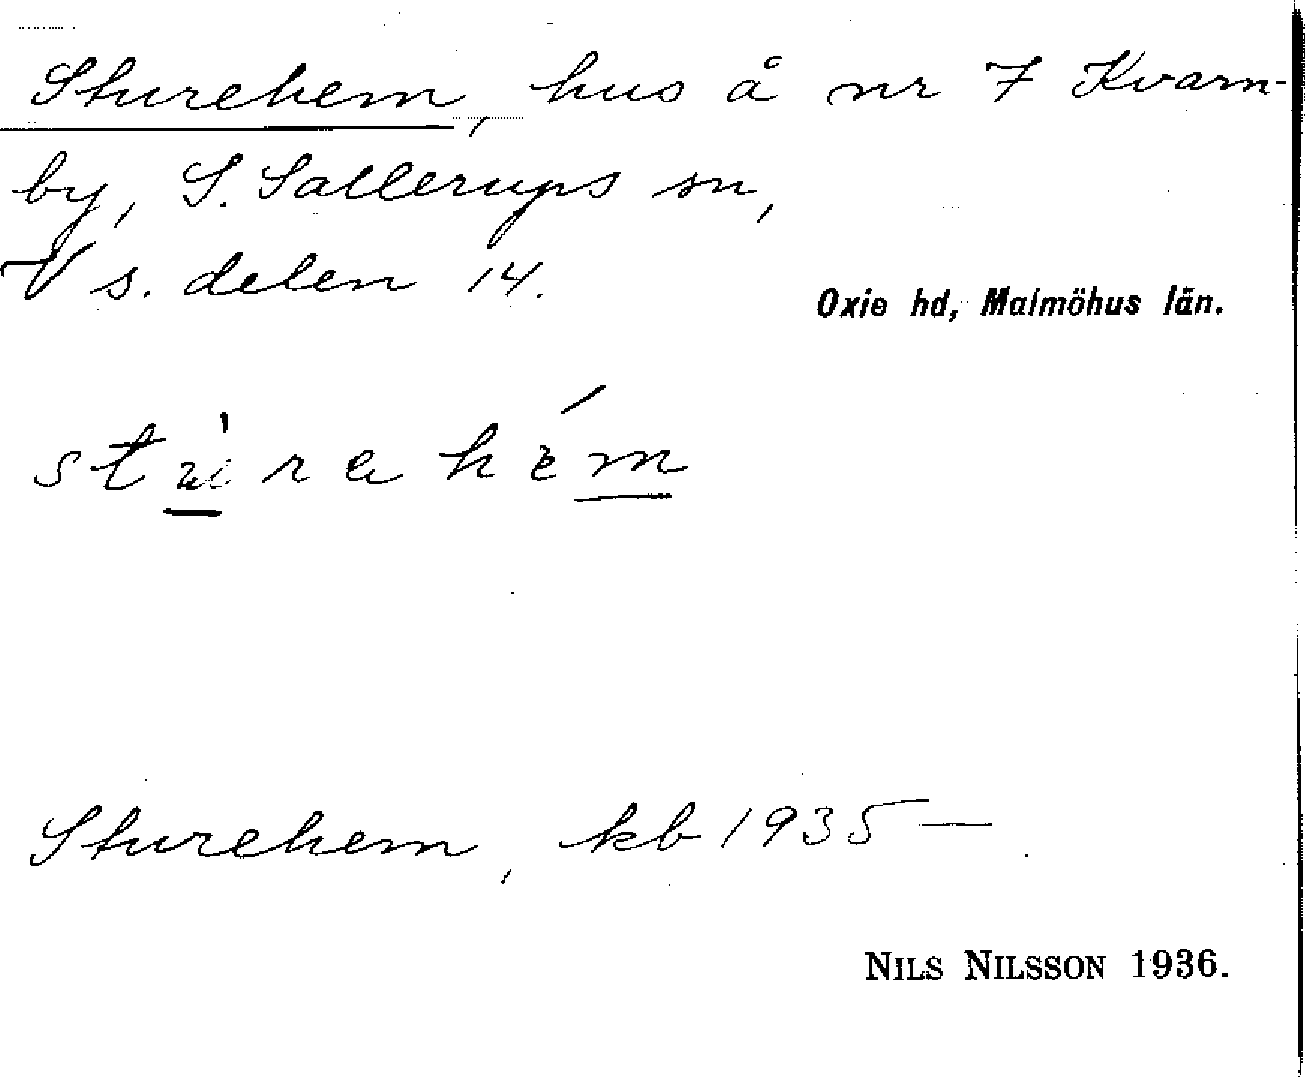 Sturehem, hus å nr 7 Kvarn-
by, S. Sallerups sn,
V s. delen 14.
Oxie hd, Malmöhus län.
Sturehem, kb 1935—
NILS NILSSON 1936.